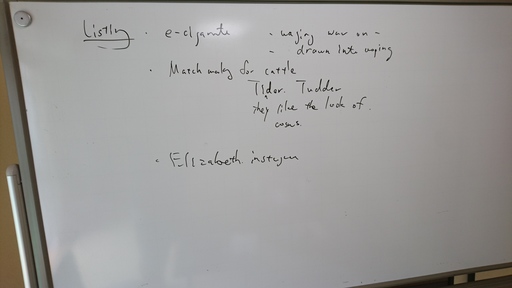 Listing · e-cigarette - waging war on -
- drawn into vaping
· Match making for cattle
Tider. Tudder
they like the look of.
cows.
· Elizabeth